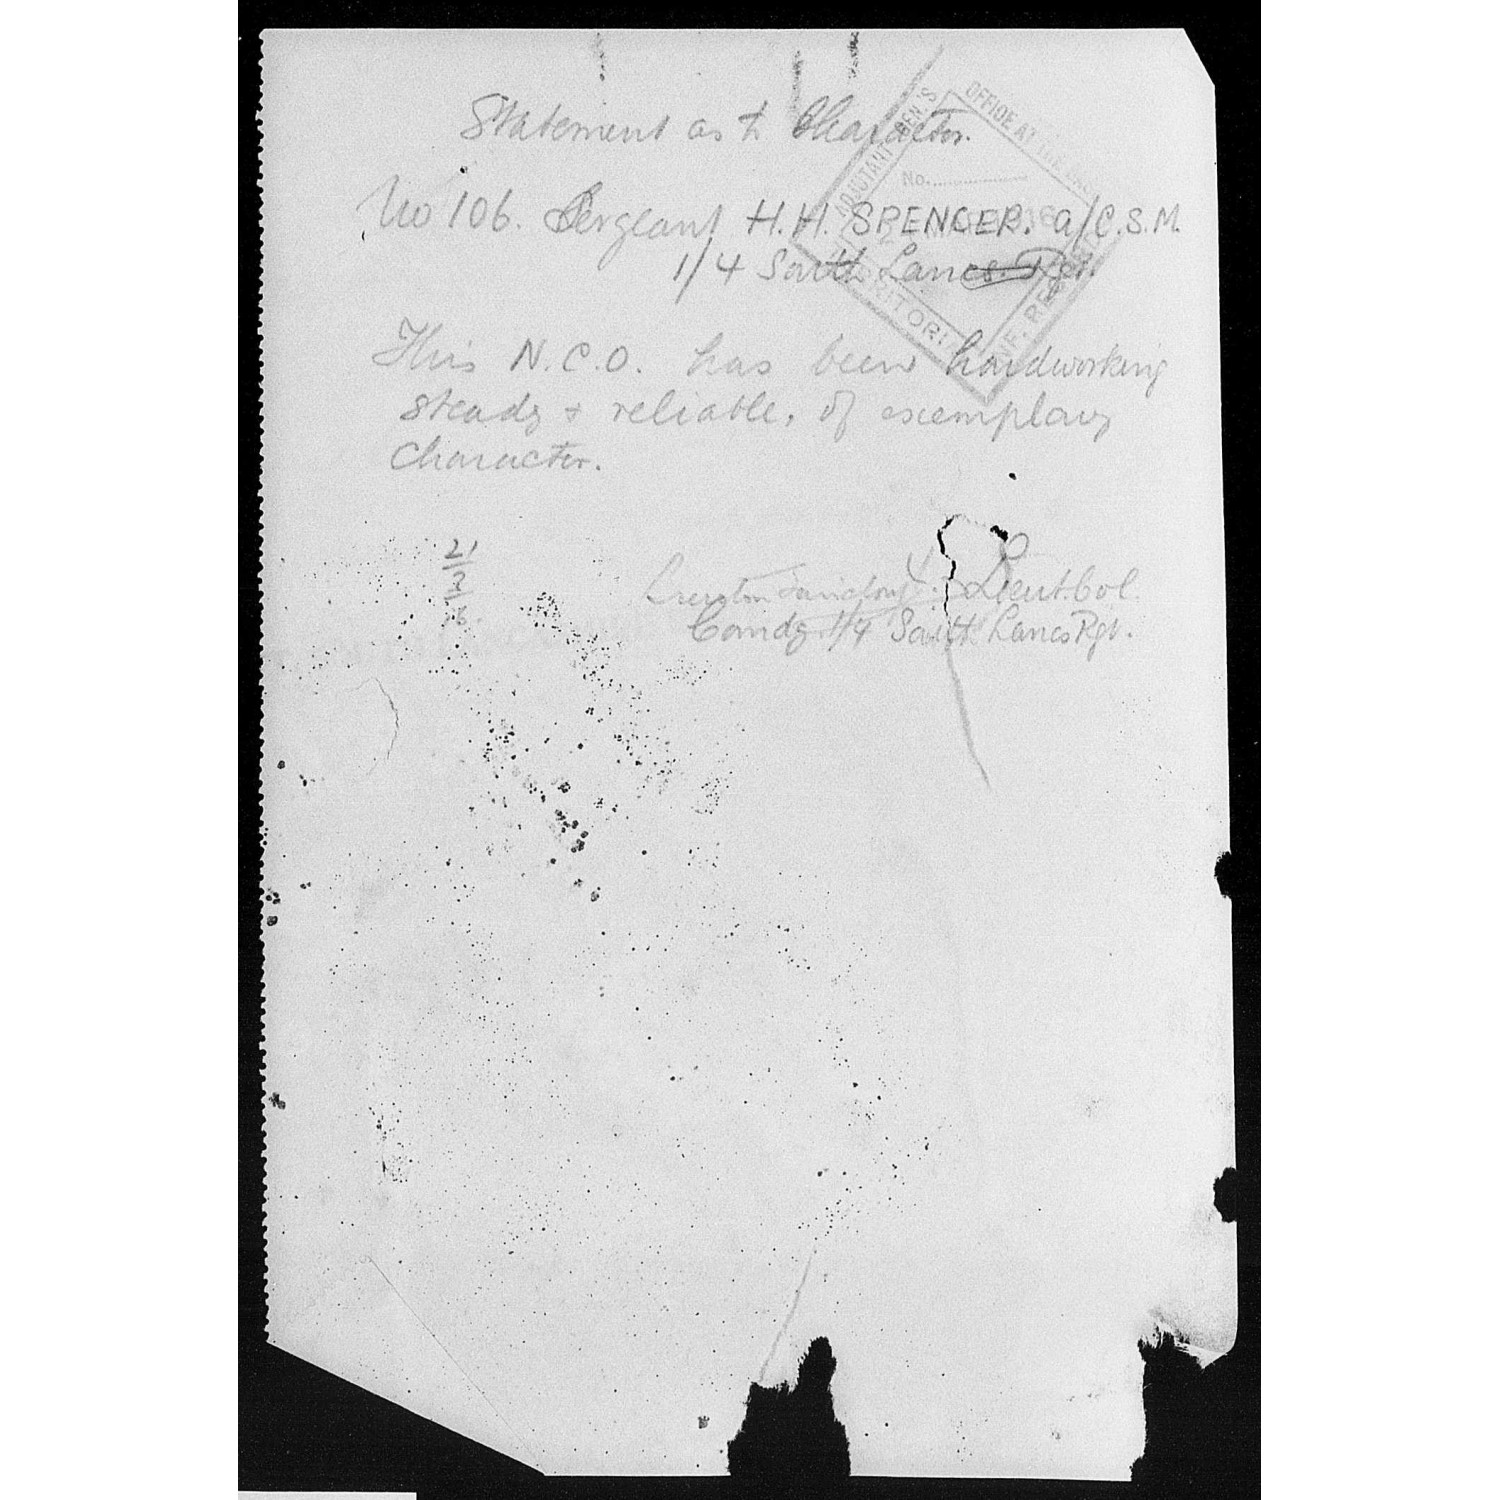 Statement as to Character.
No 106. Sergeant H.H. SPENCER. a/C.S.M.
1/4 South Lancs. Rgt.
ADJUTANT GEN.'S OFFICE AT THE BASE
No.
TERRITORIAL INF. RECORD
This N.C.O. has been hardworking
steady & reliable, of exemplary
Character.
21/3/16.
Lieut. Col.
Comdg 1/4 South Lancs Rgt.